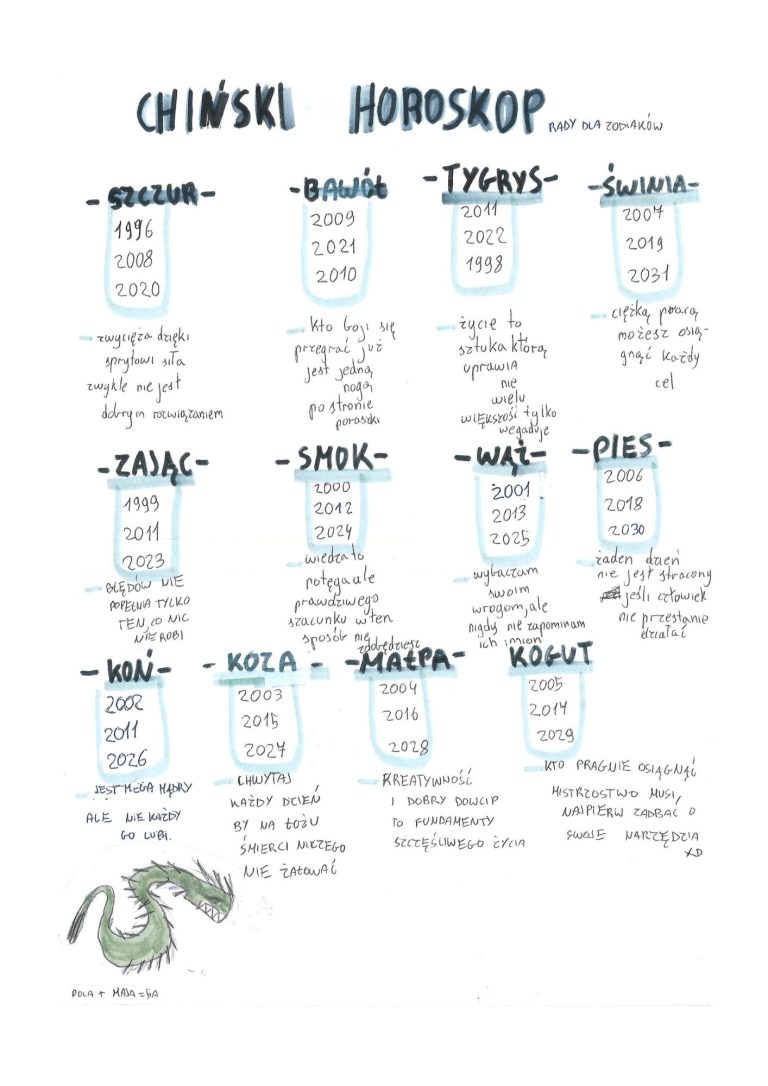 CHIŃSKI HOROSKOP RADY DLA ZODIAKÓW
-SZCZUR-
1996
2008
2020
zwycięża dzięki
sprytowi siła
zwykle nie jest
dobrym rozwiązaniem
-BAWÓŁ
2009
2021
2010
Kto boji się
przegrać już
jest jedną
nogą
po stronie
porażki
-TYGRYS-
2011
2022
1998
życie to
sztuka którą
uprawia
nie
wielu
większość tylko
wegaduje
-ŚWINIA-
2007
2019
2031
ciężką pracą
możesz osią-
gnąć każdy
cel
-ZAJĄC-
1999
2011
2023
BŁĘDÓW NIE
POPEŁNIA TYLKO
TEN, CO NIC
NIE ROBI
-SMOK-
2000
2012
2024
wiedza to
potęga ale
prawdziwego
szacunku w ten
sposób nie
zdobędziesz
-WĄŻ-
2001
2013
2025
wybaczam
swoim
wrogom, ale
nigdy nie zapominam
ich imion
-PIES-
2006
2018
2030
żaden dzień
nie jest stracony
jeśli człowiek
nie przestanie
działać
-KOŃ-
2002
2011
2026
JEST MEGA MĄDRY
ALE NIE KAŻDY
GO LUBI.
-KOZA-
2003
2015
2027
CHWYTAJ
KAŻDY DZIEŃ
BY NA ŁOŻU
ŚMIERCI NICZEGO
NIE ŻAŁOWAĆ
-MAŁPA-
2004
2016
2028
KREATYWNOŚĆ
I DOBRY DOWCIP
TO FUNDAMENTY
SZCZĘŚLIWEGO ŻYCIA
KOGUT
2005
2017
2029
KTO PRAGNIE OSIĄGNĄĆ
MISTRZOSTWO MUSI,
NAJPIERW ZADBAĆ O
SWOJE NARZĘDZIA
XD
POLA + MAJA = 5A